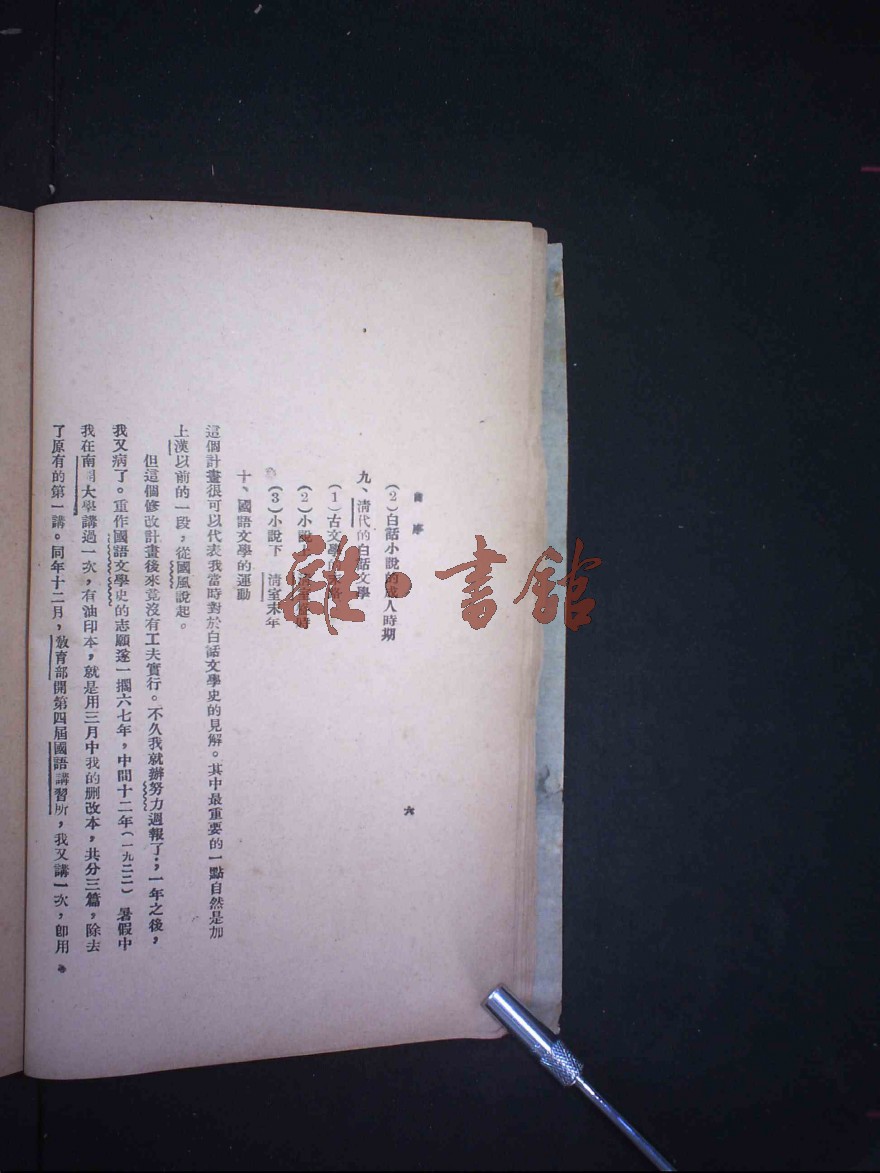 自序
六
(2)白話小說的成人時期
九、清代的白話文學
(1)古文學的末路
(2)小說上 清室盛時
(3)小說下 清室末年
十、國語文學的運動
這個計畫很可以代表我當時對於白話文學史的見解。其中最重要的一點自然是加
上漢以前的一段,從國風說起。
但這個修改計畫後來竟沒有工夫實行。不久我就辦努力週報了;一年之後,
我又病了。重作國語文學史的志願遂一擱六七年,中間十二年(一九二二)暑假中
我在南開大學講過一次,有油印本,就是用三月中我的刪改本,共分三篇,除去
了原有的第一講。同年十二月,教育部開第四屆國語講習所,我又講一次,卽用
雜·書舘